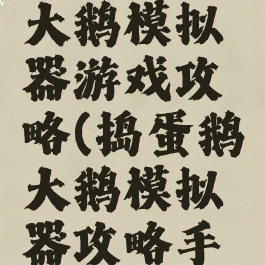 大鹅模拟
器游戏攻
略(捣蛋鹅
大鹅模拟
器攻略手